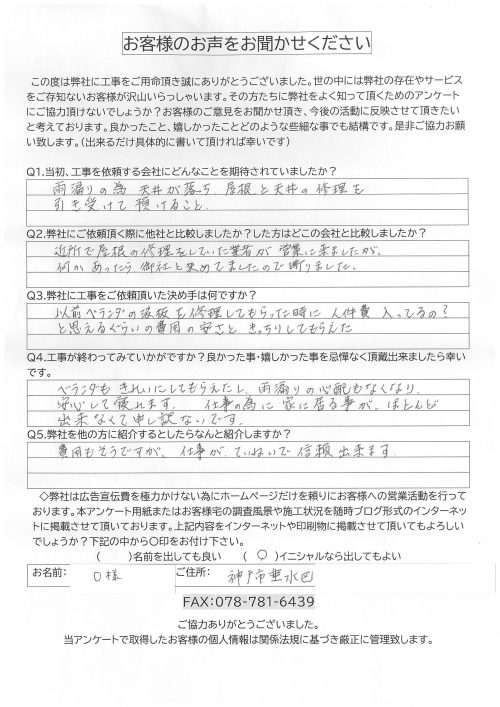 お客様のお声をお聞かせください
この度は弊社に工事をご用命頂き誠にありがとうございました。世の中には弊社の存在やサービス
をご存知ないお客様が沢山いらっしゃいます。その方たちに弊社をよく知って頂くためのアンケート
にご協力頂けないでしょうか？お客様のご意見をお聞かせ頂き、今後の活動に反映させて頂きたい
と考えております。良かったこと、嬉しかったことどのような些細な事でも結構です。是非ご協力お願
い致します。（出来るだけ具体的に書いて頂ければ幸いです）
Q1.当初、工事を依頼する会社にどんなことを期待されていましたか？
雨漏りの為 天井が落ち、屋根と天井の修理を
引き受けて頂けること.
Q2.弊社にご依頼頂く際に他社と比較しましたか？した方はどこの会社と比較しましたか？
近所で屋根の修理をしていた業者が営業に来ましたが、
何かあったら御社と決めてましたので断りました.
Q3.弊社に工事をご依頼頂いた決め手は何ですか？
以前ベランダの波板を修理してもらった時に 人件費 入ってるの？
と思えるぐらいの費用の安さと きっちりしてもらえた
Q4.工事が終わってみていかがですか？良かった事・嬉しかった事を忌憚なく頂戴出来ましたら幸い
です。
ベランダも きれいにしてもらえたし、雨漏りの心配もなくなり.
安心して寝れます. 仕事の為に家に居る事が、ほとんど
出来なくて申し訳ないです.
Q5.弊社を他の方に紹介するとしたらなんと紹介しますか？
費用もそうですが、仕事が、ていねいで信頼出来ます.
◇弊社は広告宣伝費を極力かけない為にホームページだけを頼りにお客様への営業活動を行って
おります。本アンケート用紙またはお客様宅の調査風景や施工状況を随時ブログ形式のインターネッ
トに掲載させて頂いております。上記内容をインターネットや印刷物に掲載させて頂いてもよろしい
でしょうか？下記の中から〇印をお付け下さい。
（　　）名前を出しても良い　（ 〇 ）イニシャルなら出してもよい
お名前: O様 ご住所: 神戸市垂水区
FAX:078-781-6439
ご協力ありがとうございました。
当アンケートで取得したお客様の個人情報は関係法規に基づき厳正に管理致します。